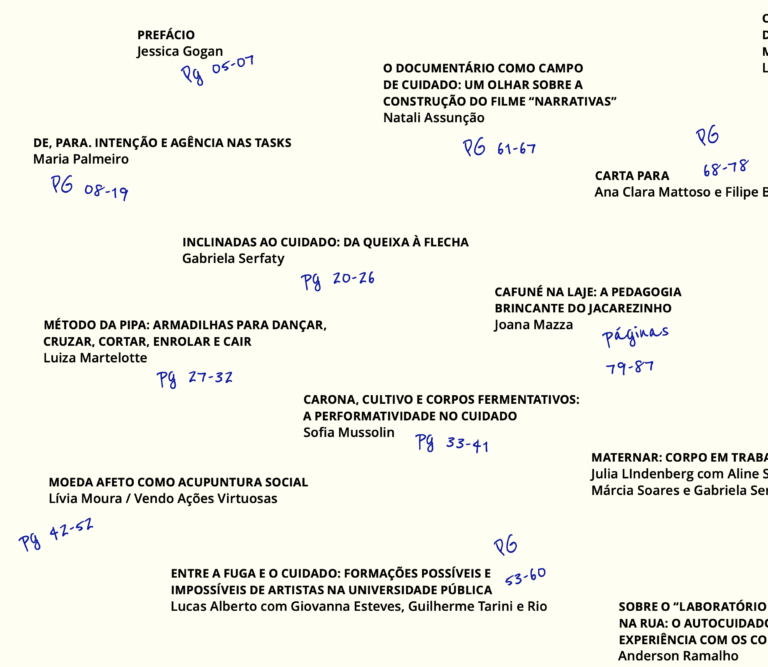 PREFÁCIO
Jessica Gogan
Pg 05-07
DE, PARA. INTENÇÃO E AGÊNCIA NAS TASKS
Maria Palmeiro
PG 08-19
INCLINADAS AO CUIDADO: DA QUEIXA À FLECHA
Gabriela Serfaty
Pg 20-26
MÉTODO DA PIPA: ARMADILHAS PARA DANÇAR,
CRUZAR, CORTAR, ENROLAR E CAIR
Luiza Martelotte
Pg 27-32
CARONA, CULTIVO E CORPOS FERMENTATIVOS:
A PERFORMATIVIDADE NO CUIDADO
Sofia Mussolin
Pg 33-41
MOEDA AFETO COMO ACUPUNTURA SOCIAL
Lívia Moura / Vendo Ações Virtuosas
Pg 42-52
ENTRE A FUGA E O CUIDADO: FORMAÇÕES POSSÍVEIS E
IMPOSSÍVEIS DE ARTISTAS NA UNIVERSIDADE PÚBLICA
Lucas Alberto com Giovanna Esteves, Guilherme Tarini e Rio
PG
53-60
O DOCUMENTÁRIO COMO CAMPO
DE CUIDADO: UM OLHAR SOBRE A
CONSTRUÇÃO DO FILME “NARRATIVAS”
Natali Assunção
PG 61-67
CARTA PARA
Ana Clara Mattoso e Filipe
PG
68-78
CAFUNÉ NA LAJE: A PEDAGOGIA
BRINCANTE DO JACAREZINHO
Joana Mazza
páginas
79-87
MATERNAR: CORPO EM
Julia LIndenberg com Aline
Márcia Soares e Gabriela
SOBRE O “LABORATÓRIO
NA RUA: O
EXPERIÊNCIA COM OS
Anderson Ramalho